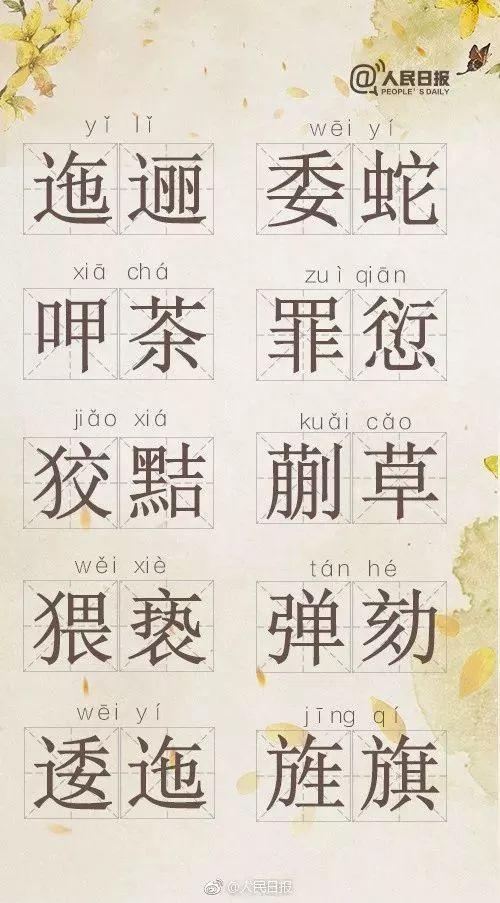 @人民日报
PEOPLE'S DAILY
yǐ lǐ wēi yí
迤逦 委蛇
xiā chá zuì qiān
呷茶 罪愆
jiǎo xiá kuǎi cǎo
狡黠 蒯草
wěi xiè tán hé
猥亵 弹劾
wēi yí jīng qí
逶迤 旌旗
@人民日报